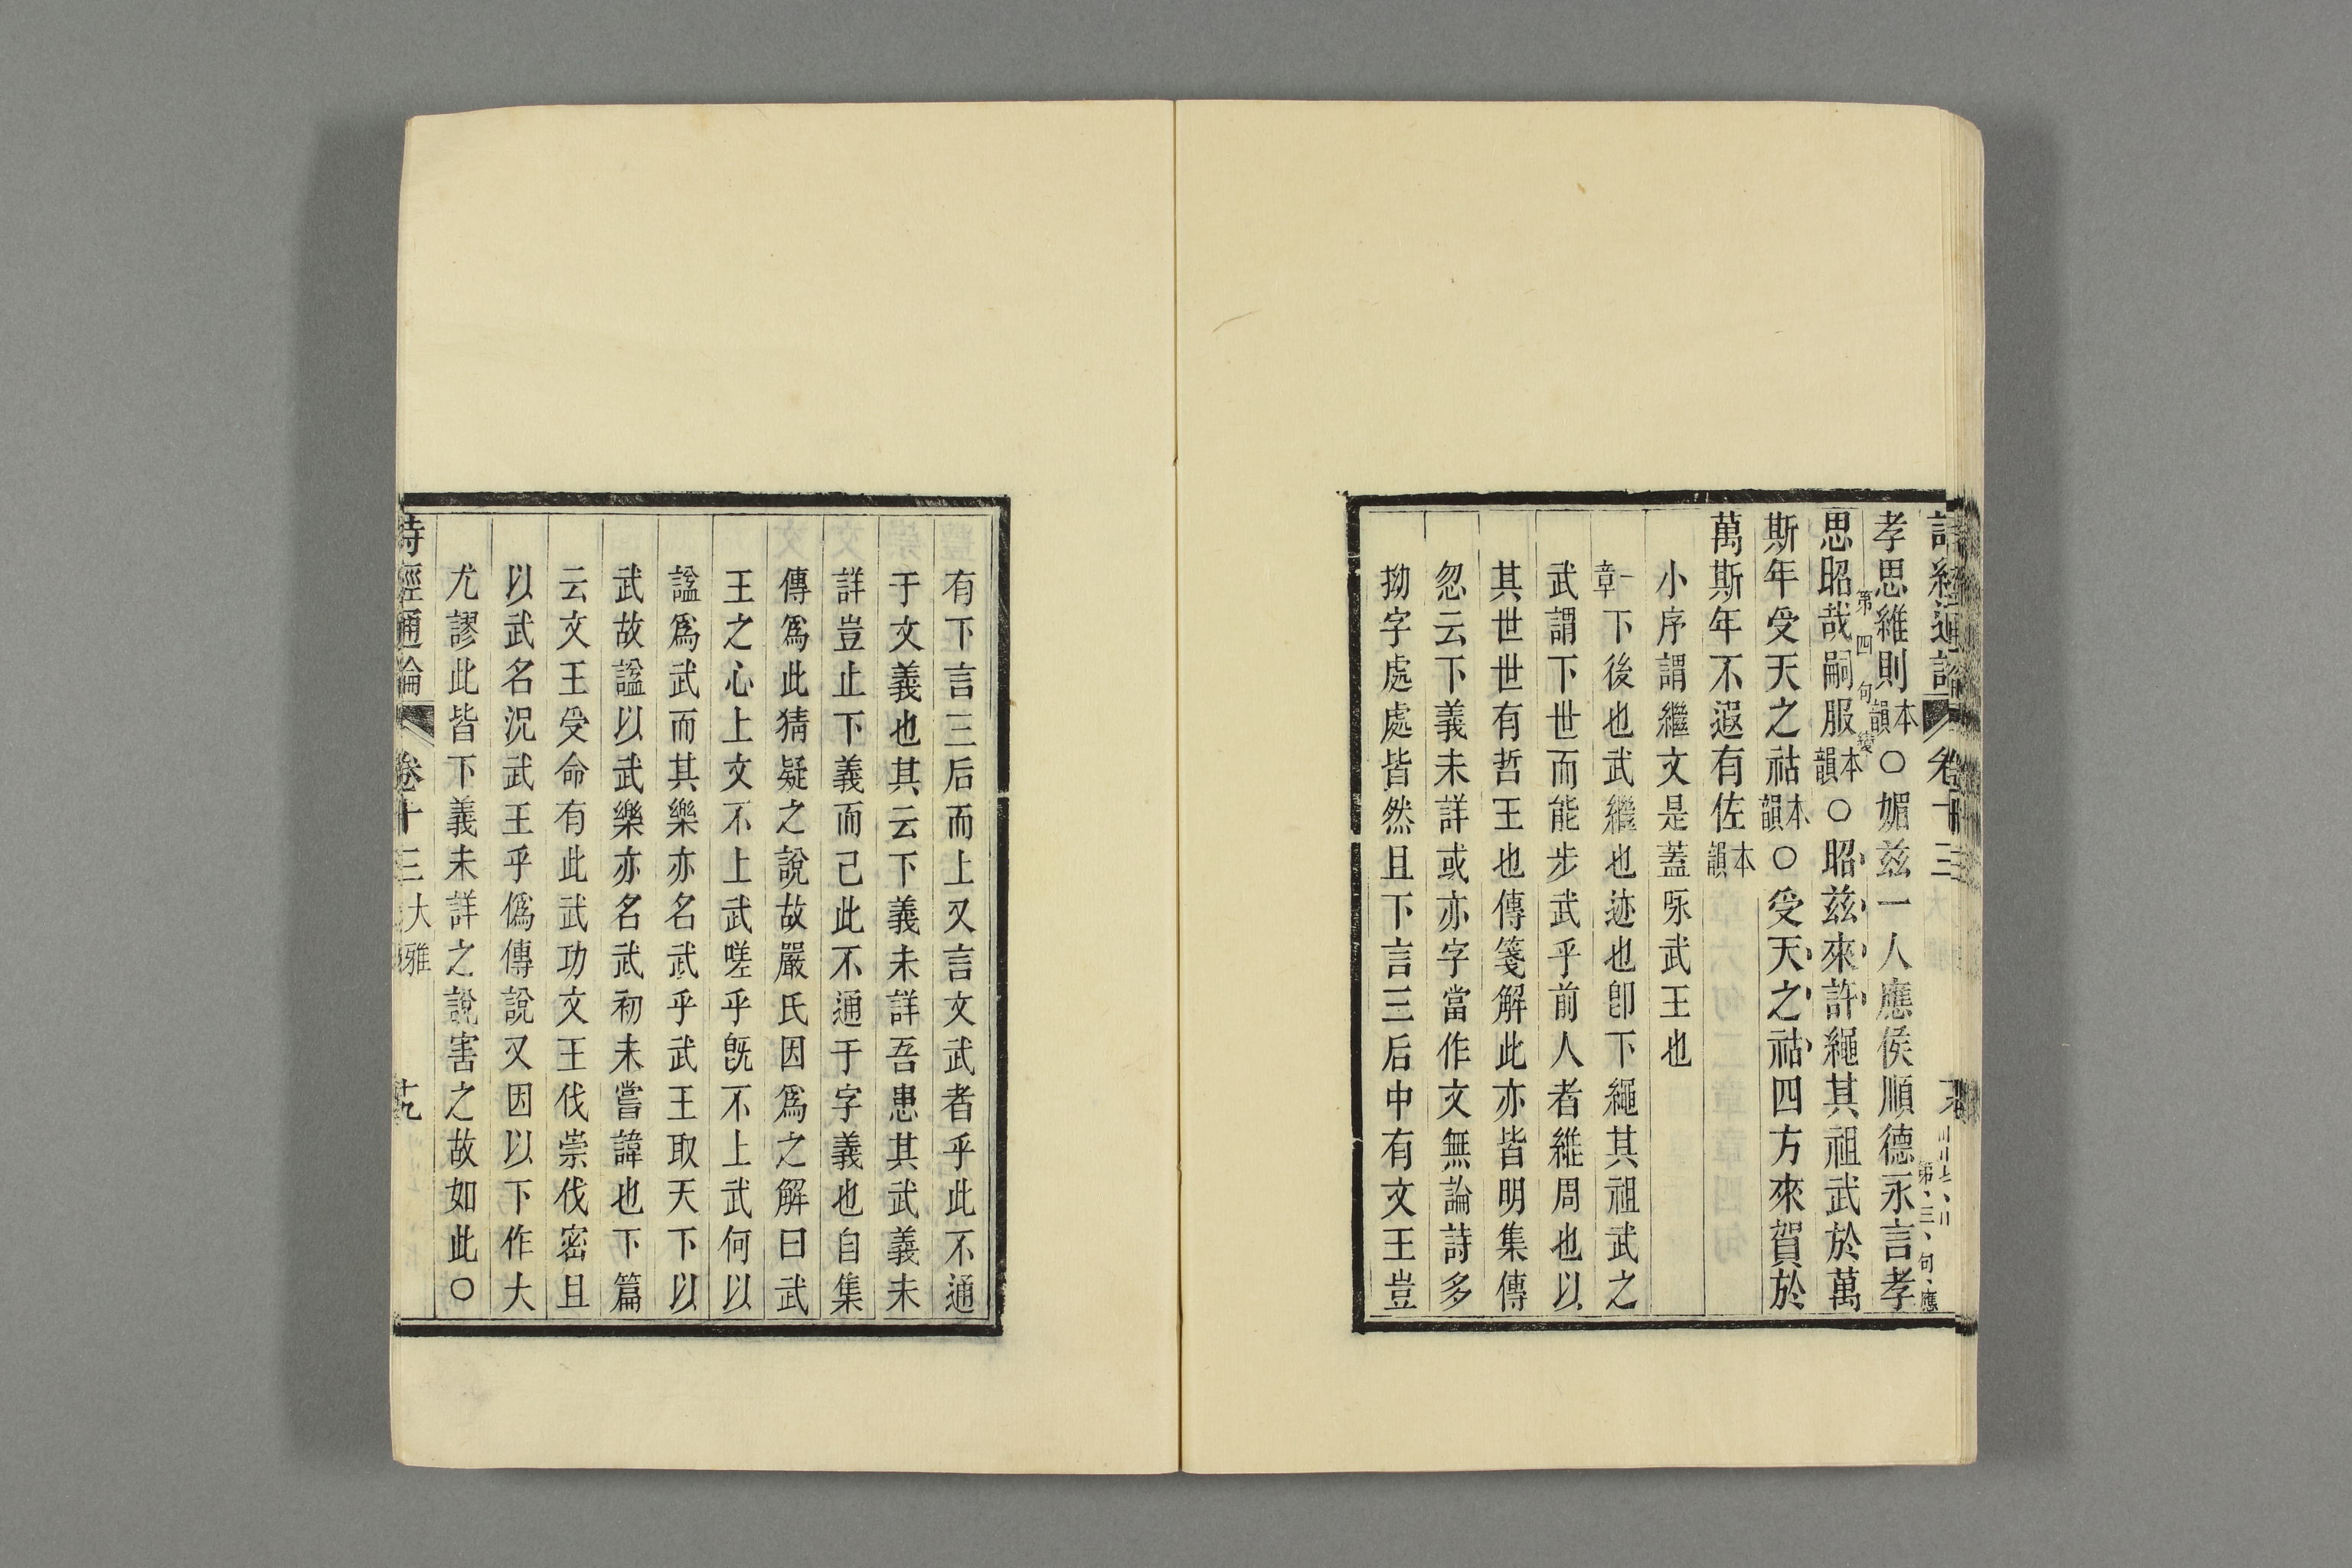 詩經通論 卷十三
孝思維則本韻○媚兹一人應侯順德永言孝
思昭哉嗣服本韻○昭兹來許繩其祖武於萬
斯年受天之祜本韻○受天之祜四方來賀於
萬斯年不遐有佐本韻
小序謂繼文是蓋咏武王也
一章下後也武繼也迹也卽下繩其祖武之
武謂下世而能步武乎前人者維周也以
其世世有哲王也傳箋解此亦皆明集傳
忽云下義未詳或亦字當作文無論詩多
拗字處處皆然且下言三后中有文王豈
有下言三后而上又言文武者乎此不通
于文義也其云下義未詳吾患其武義未
詳豈止下義而已此不通于字義也自集
傳爲此猜疑之說故嚴氏因爲之解曰武
王之心上文不上武嗟乎旣不上武何以
諡爲武而其樂亦名武乎武王取天下以
武故諡以武樂亦名武初未嘗諱也下篇
云文王受命有此武功文王伐崇伐密且
以武名況武王乎僞傳說又因以下作大
尤謬此皆下義未詳之說害之故如此○
詩經通論 卷十三 大雅
第三句應
第四句